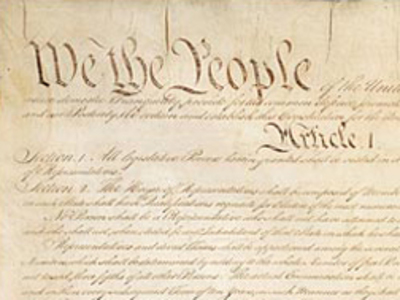 We the People of the Unite
insure domestic Tranquility, provide for the common defence, promote
and our Posterity, do ordain and establish this Constitution for the
Article I.
Section 1. All legislative Powers herein granted shall be vested in a
of Representatives.
Section 2. The House of Representatives shall be composed of Memb
in each State shall have Qualifications requisite for Electors of the most numerous
No Person shall be a Representative who shall not have attained to
and who shall not, when elected, be an Inhabitant of that State in which he
Representatives and direct Taxes shall be apportioned among the several
Numbers, which shall be determined by adding to the whole Number of free
not taxed, three fifths of all other Persons. The actual Enumeration shall be
and within every subsequent Term of ten Years, in such Manner as